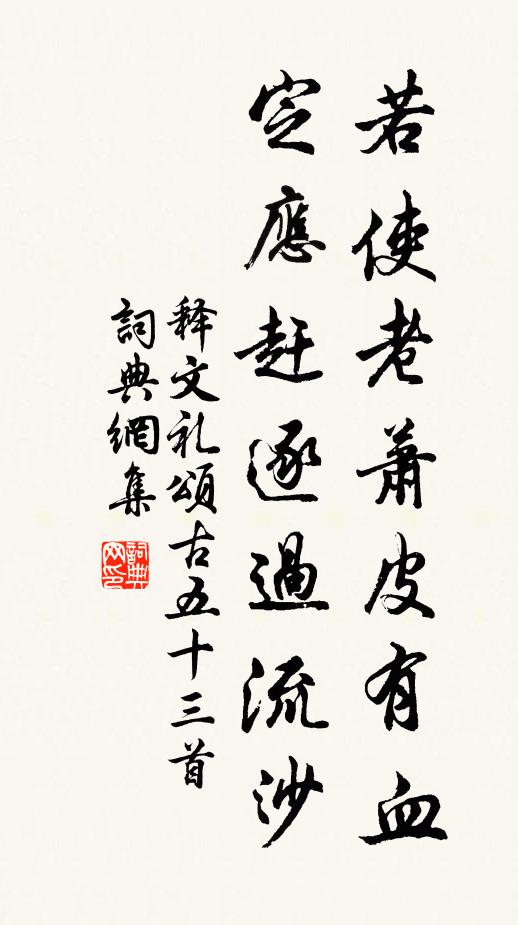 若使老蕭皮有血
定應赶逐過流沙
释文礼頌古五十三首
詞典網集
詞典網印